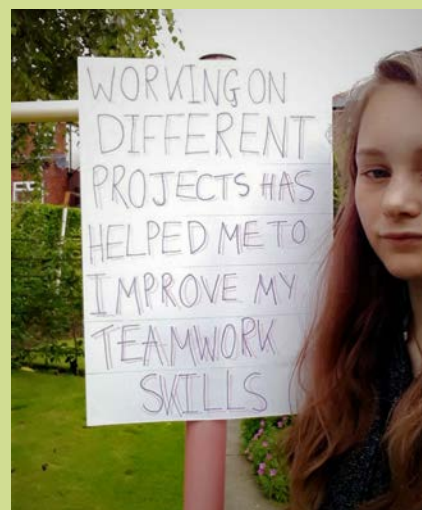 WORKING ON
DIFFERENT
PROJECTS HAS
HELPED ME TO
IMPROVE MY
TEAMWORK
SKILLS